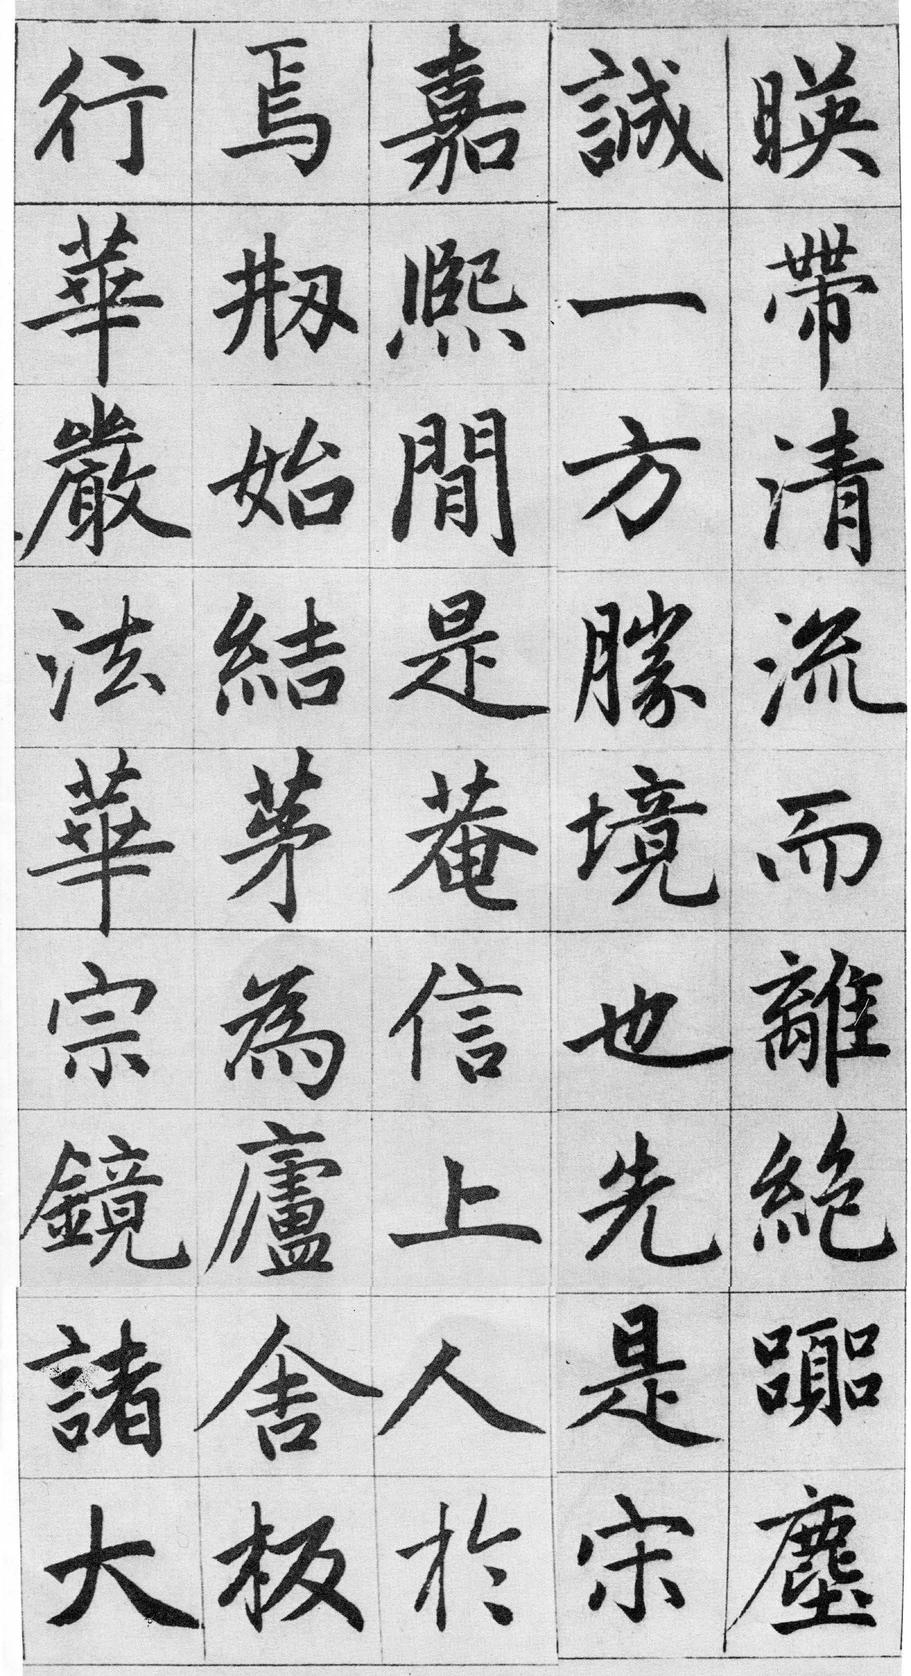 暎帶清流而離絶嚻塵
誠一方勝境也先是宋
嘉熙間是菴信上人於
焉刱始結茅為廬舍板
行華嚴法華宗鏡諸大